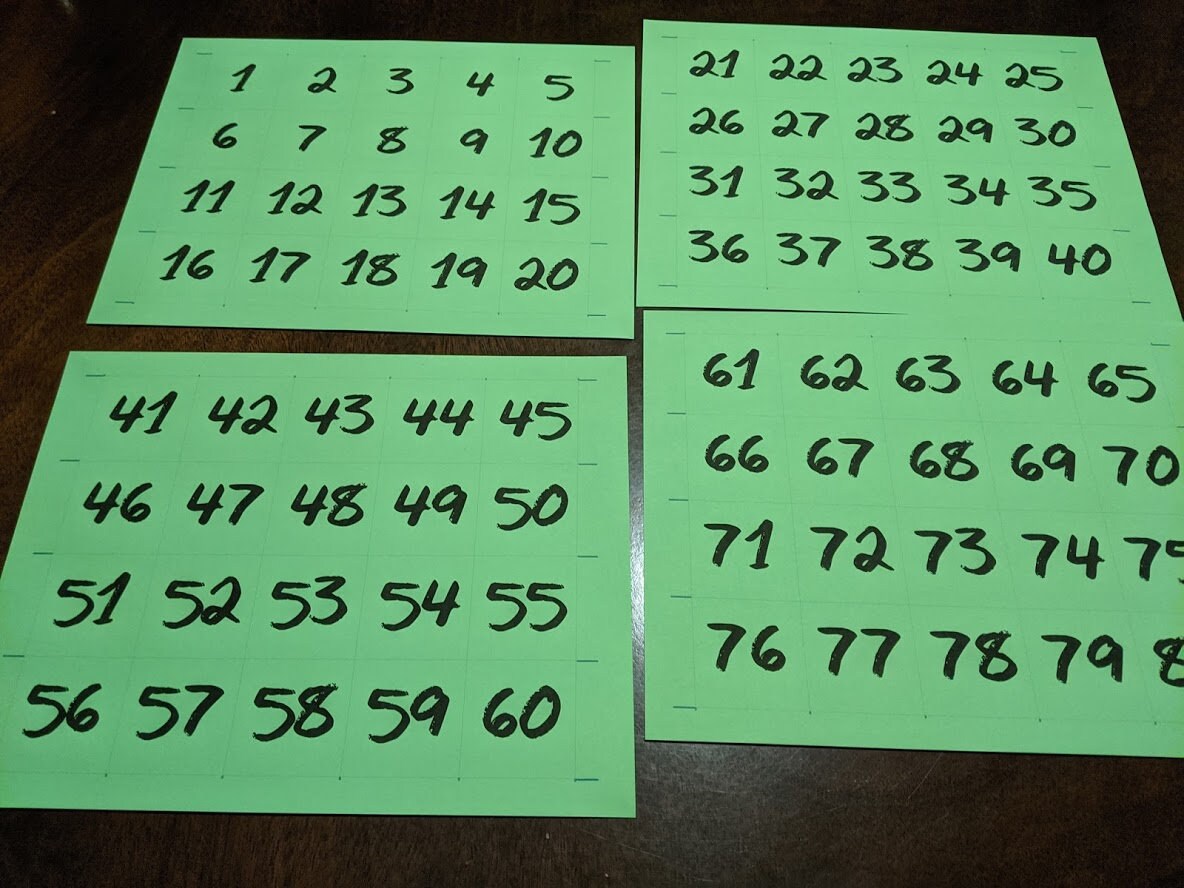 1 2 3 4 5
6 7 8 9 10
11 12 13 14 15
16 17 18 19 20
21 22 23 24 25
26 27 28 29 30
31 32 33 34 35
36 37 38 39 40
41 42 43 44 45
46 47 48 49 50
51 52 53 54 55
56 57 58 59 60
61 62 63 64 65
66 67 68 69 70
71 72 73 74 75
76 77 78 79 8